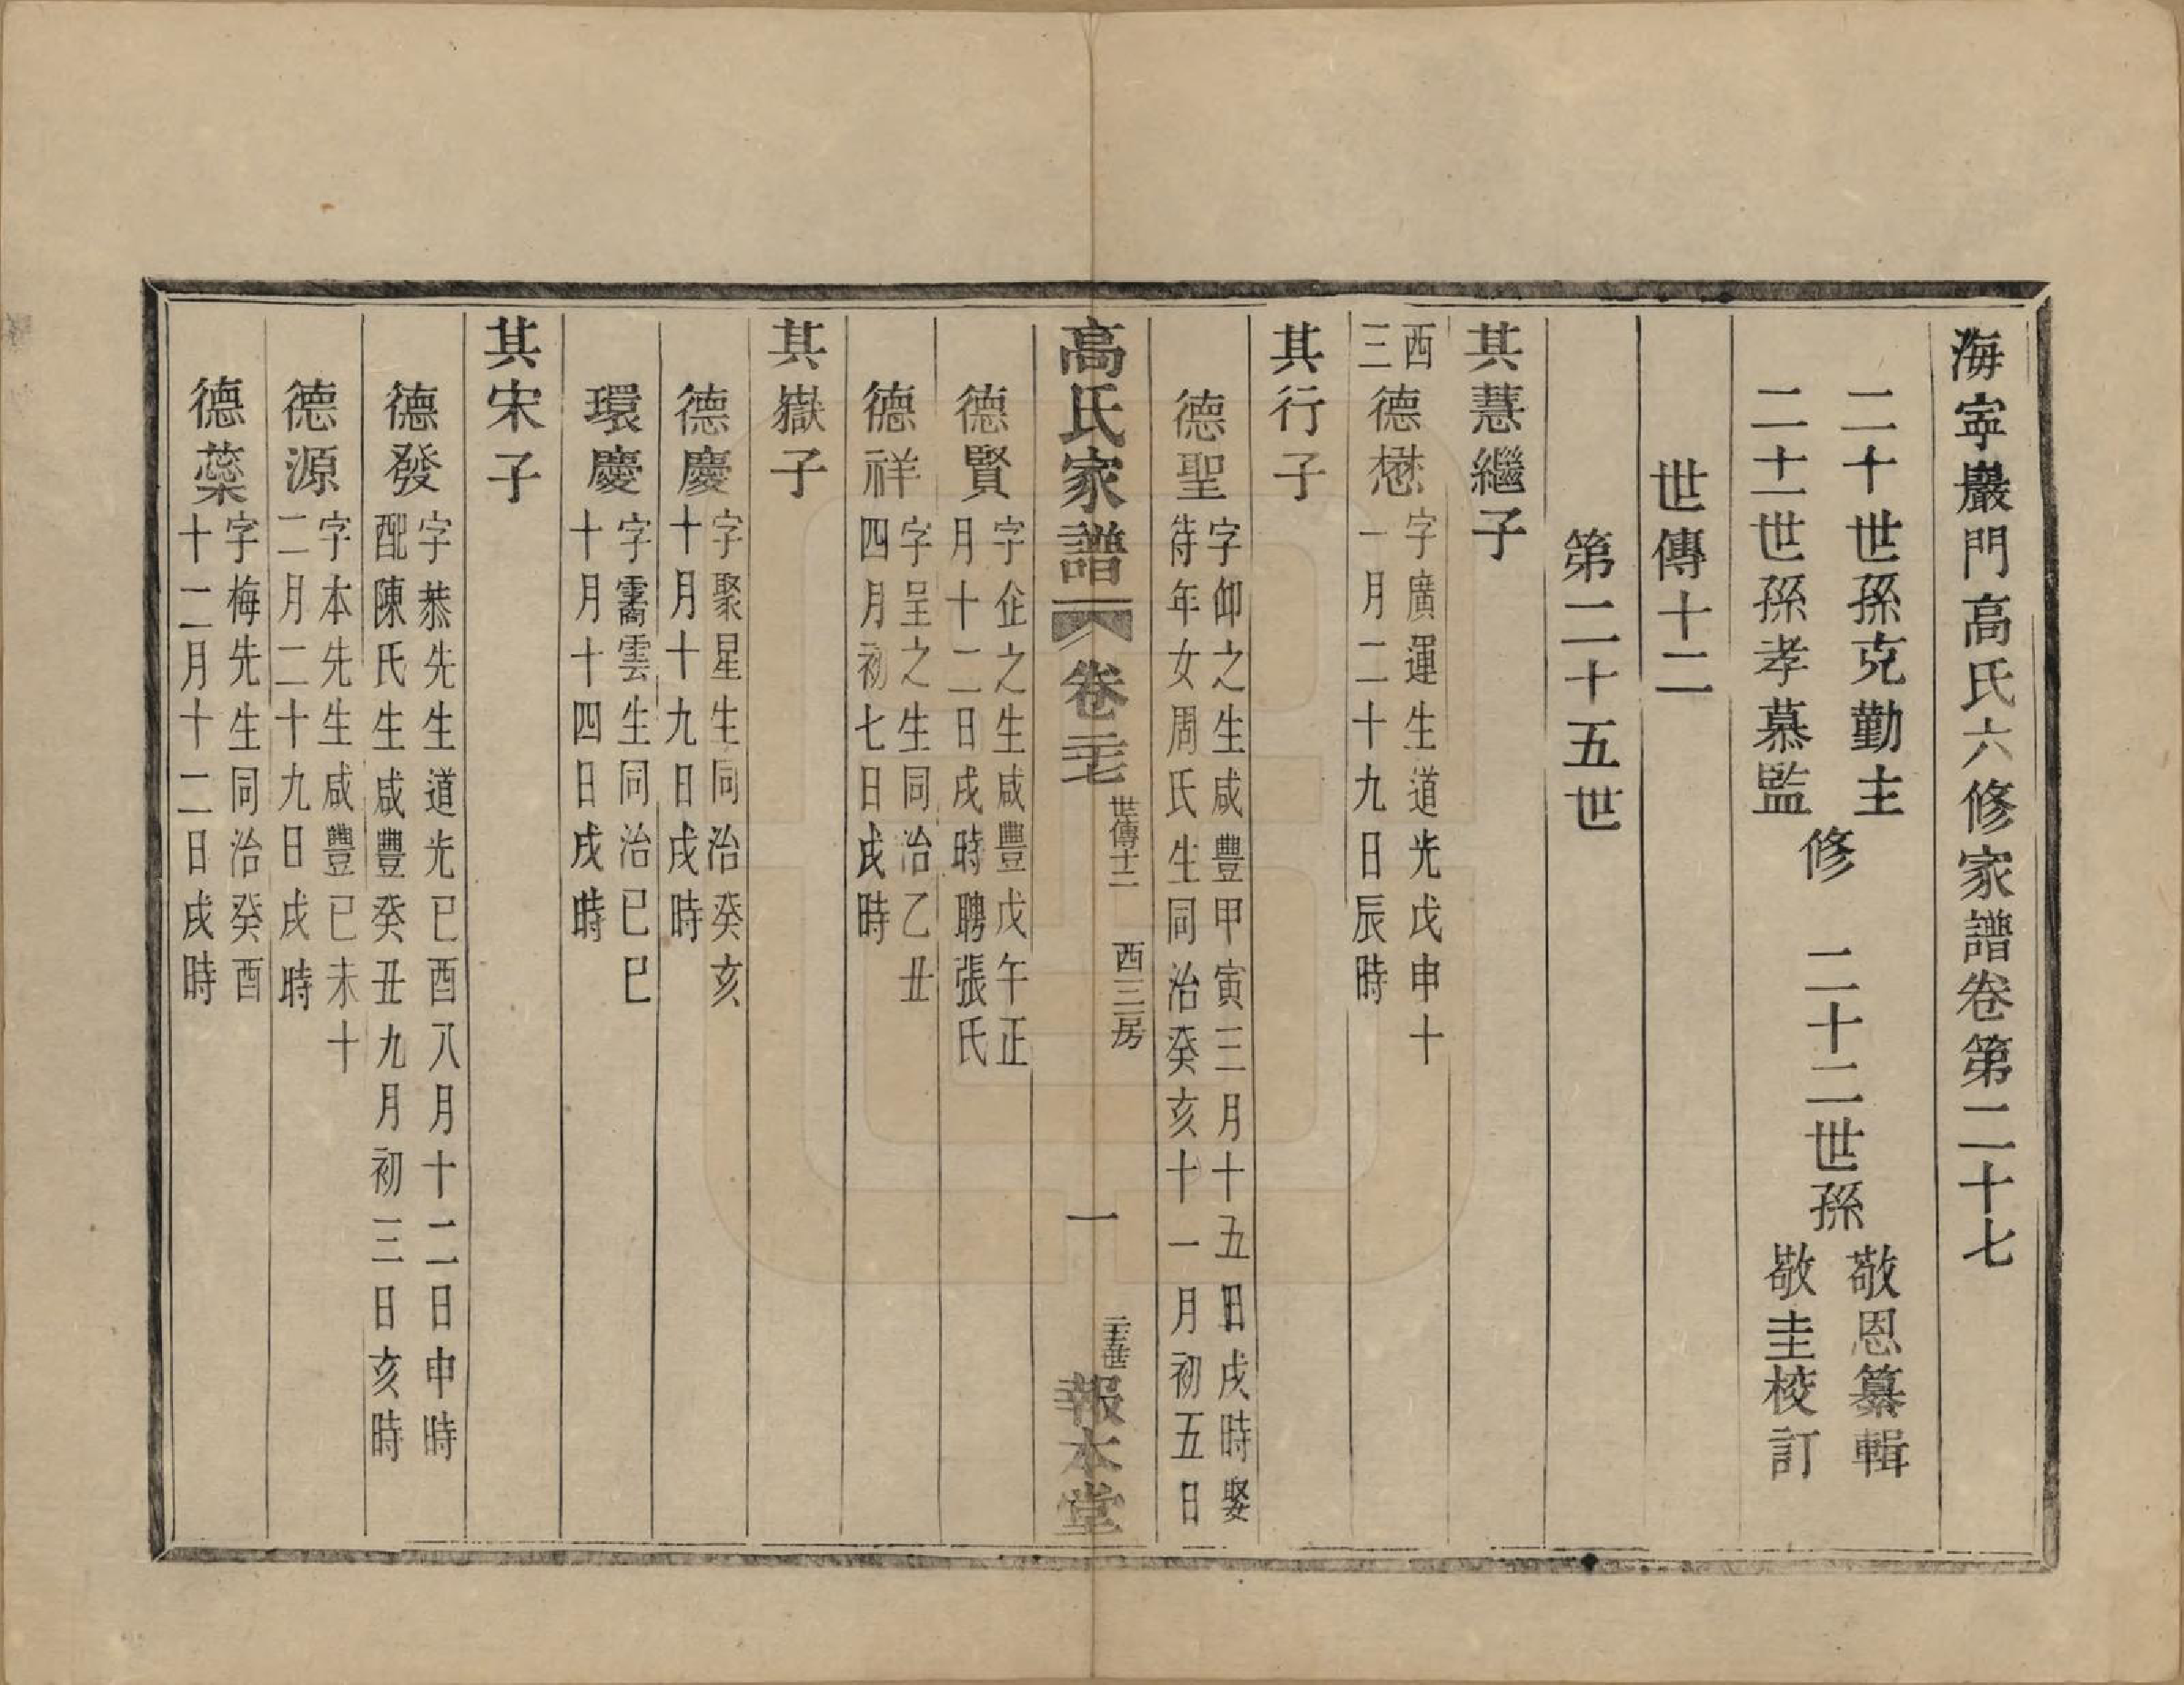 海寧巖門高氏六修家譜卷第二十七
二十世孫克勤主
二十一世孫孝慕監
修
二十二世孫
敬恩纂輯
敬圭校訂
世傳十二
第二十五世
其慧繼子
西三
德懋
字廣運生道光戊申十
一月二十九日辰時
其行子
德聖
字仰之生咸豐甲寅三月十五日戌時娶
待年女周氏生同治癸亥十一月初五日
高氏家譜
卷二十七
世傳十二
西三房
一
二十五世
報本堂
德賢
字企之生咸豐戊午正
月十二日戌時聘張氏
德祥
字呈之生同治乙丑
四月初七日戌時
其嶽子
德慶
字聚星生同治癸亥
十月十九日戌時
環慶
字霱雲生同治己巳
十月十四日戌時
其宋子
德發
字恭先生道光己酉八月十二日申時
配陳氏生咸豐癸丑九月初三日亥時
德源
字本先生咸豐己未十
二月二十九日戌時
德蘂
字梅先生同治癸酉
十二月十二日戌時